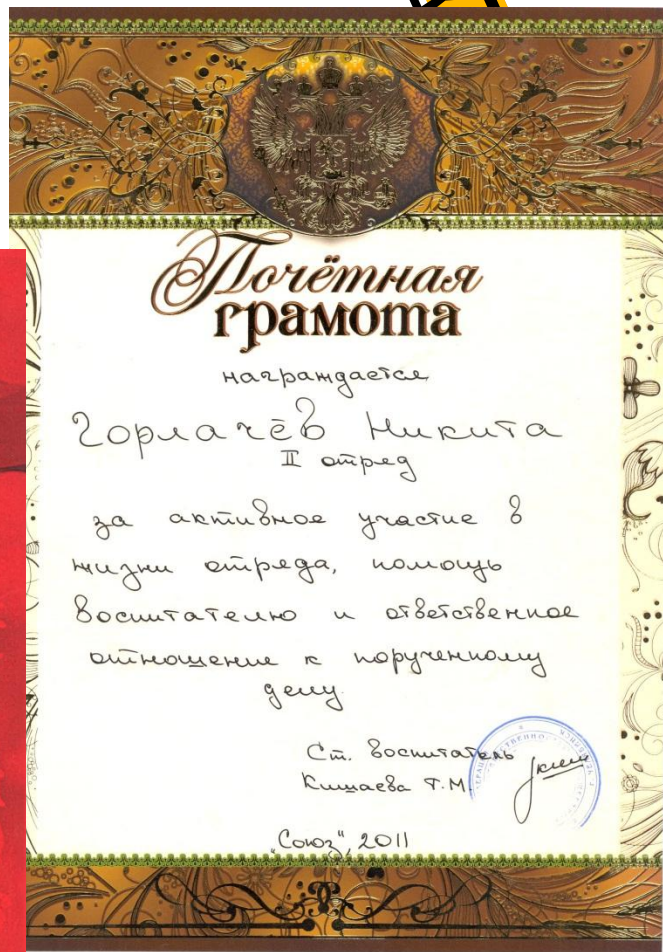 Почётная
грамота
награждается
Горлачёв Никита
II отряд
за активное участие в
жизни отряда, помощь
воспитателю и ответственное
отношение к порученному
делу.
Ст. воспитатель
Кищаева Т.М.
"Союз", 2011